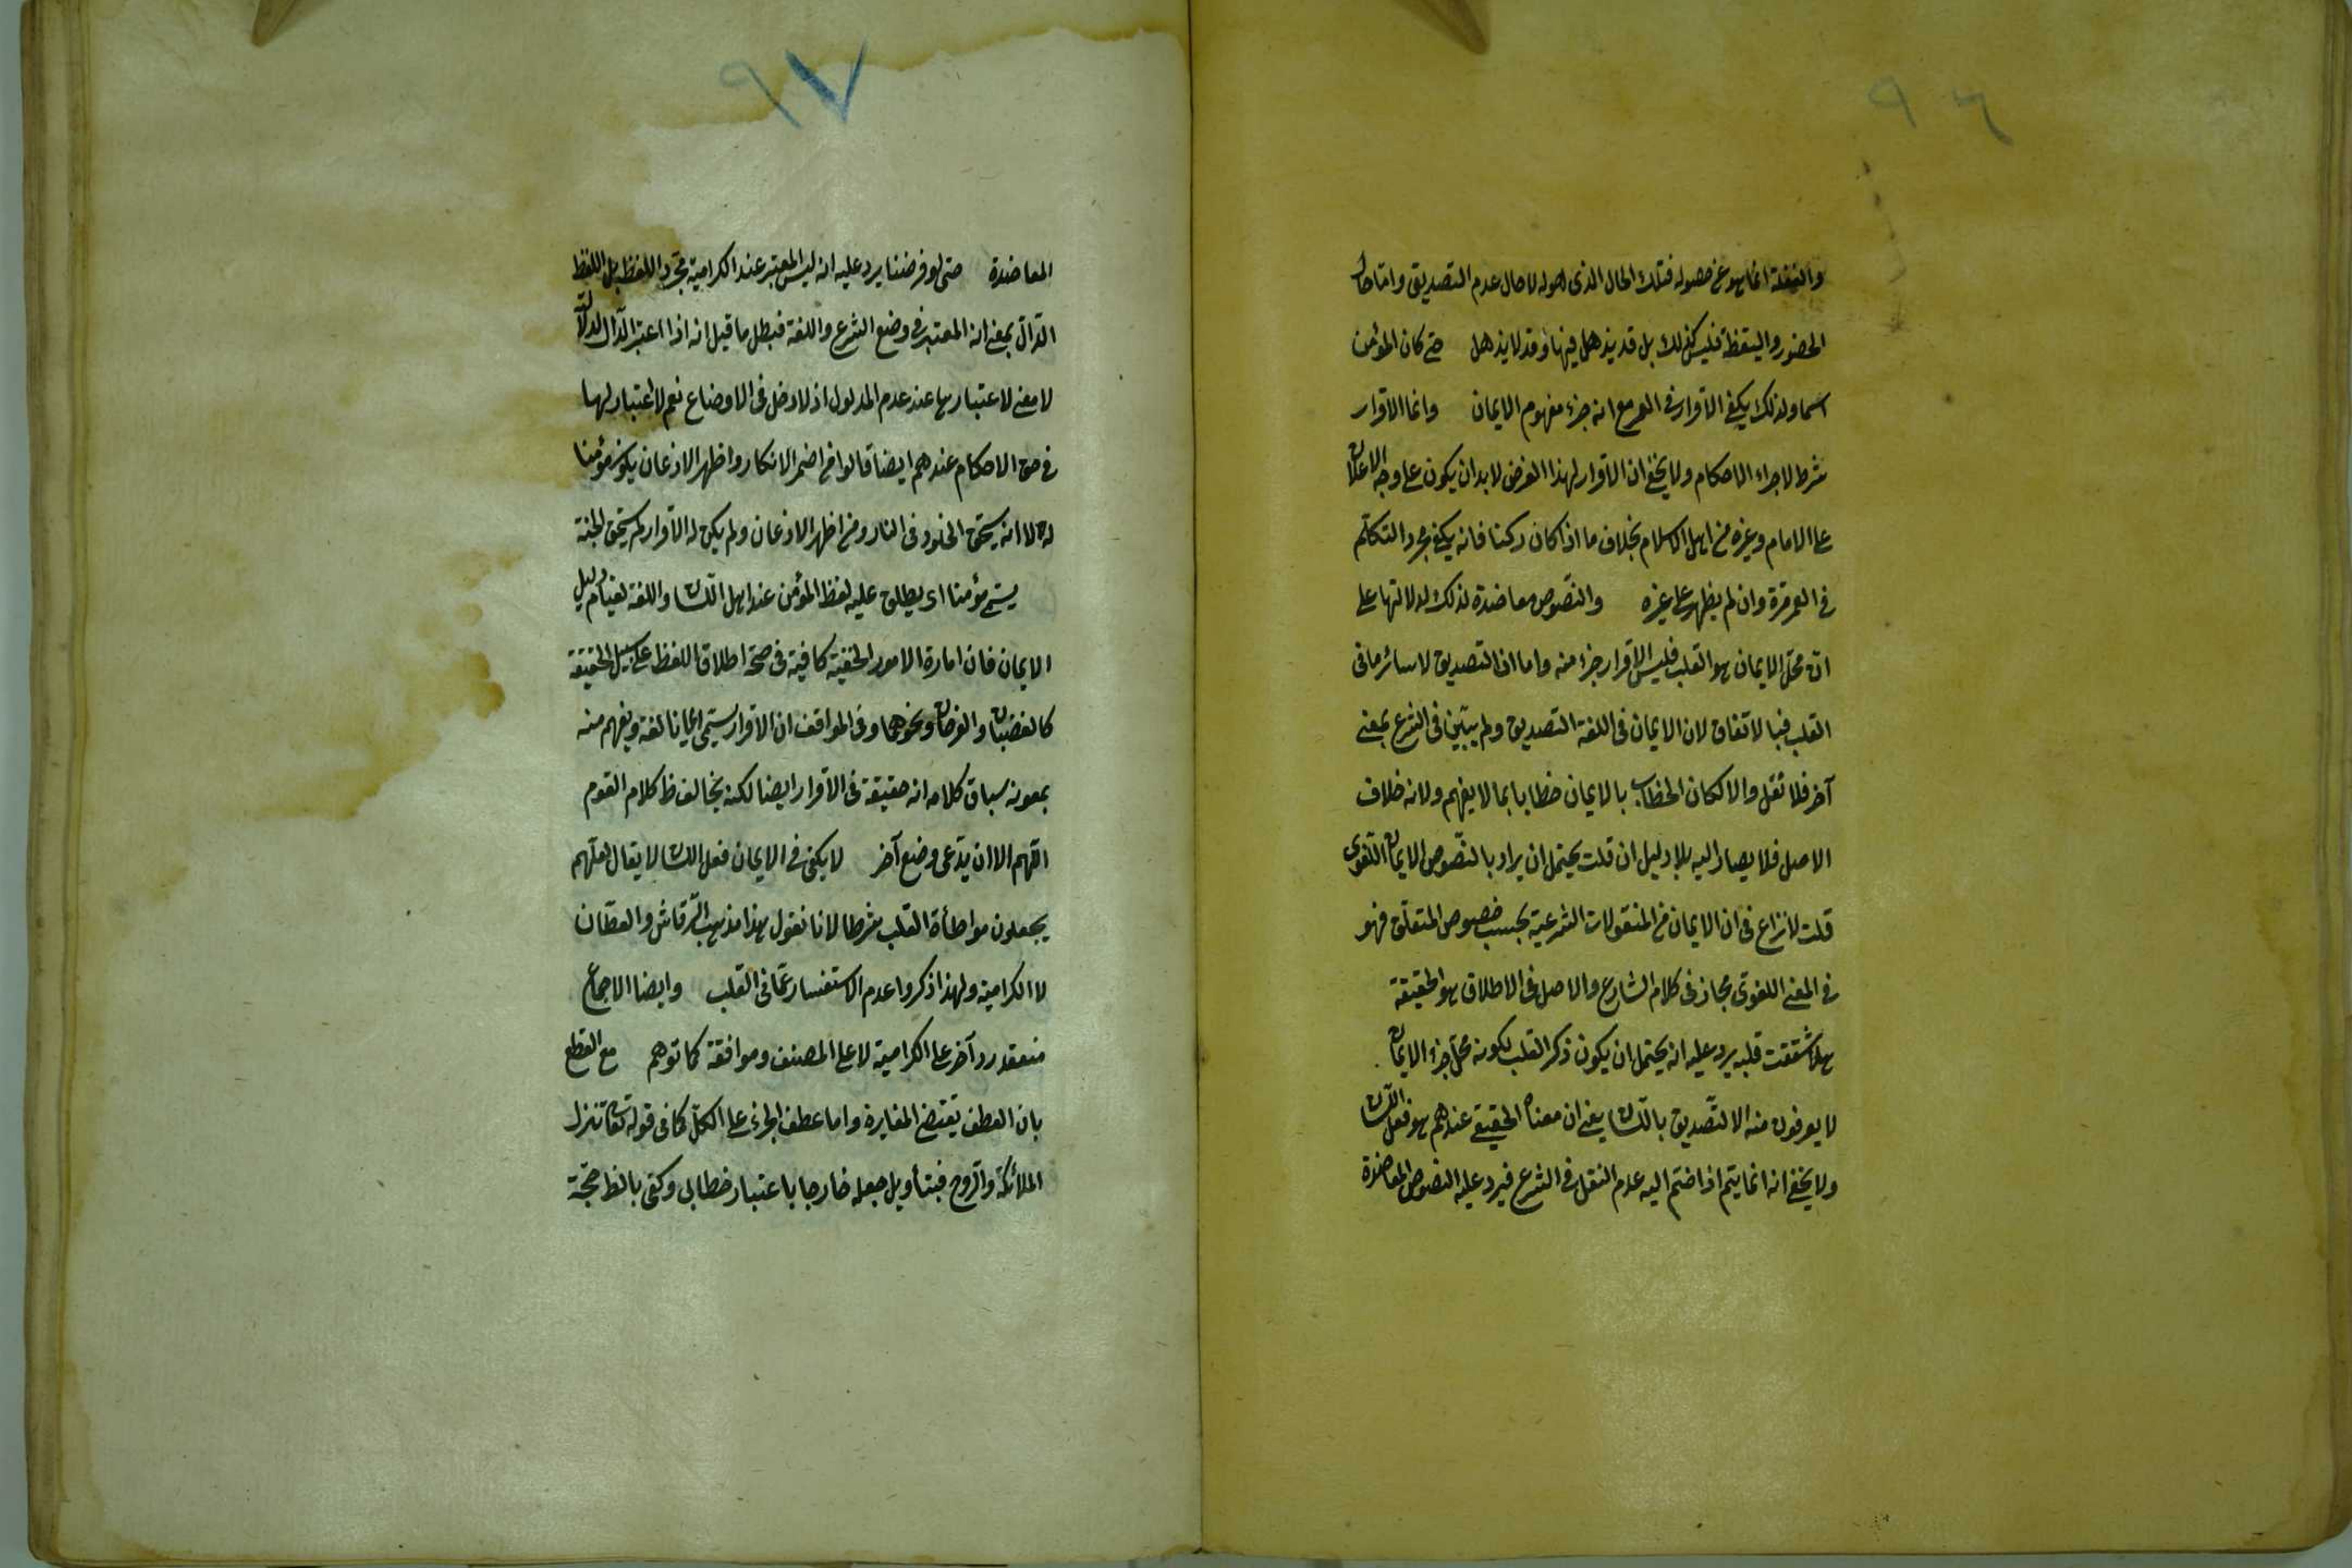 ٩٦
والغفلة انما هو عن حصوله فتلك الحال الذى هو له لا حال عدم التصديق واما حال
الحضور واليقظة فليس كذلك بل قد يذهل فيها وقد لا يذهل حتى كان المؤمن
اسما ولذلك يكفى الاقرار فى العمر مع انه جزء مفهوم الايمان وانما الاقرار
شرط لاجراء الاحكام ولا يخفى ان الاقرار لهذا الغرض لا بد ان يكون على وجه الاعلان
على الامام وغيره من اهل الاسلام بخلاف ما اذا كان ركنا فانه يكفى مجرد التكلم
فى العمر مرة وان لم يظهر على غيره والنصوص معاضدة لذلك لدلالتها على
ان محل الايمان هو القلب فليس الاقرار جزء منه واما ان التصديق لا سائر ما فى
القلب فبالاتفاق لان الايمان فى اللغة التصديق ولم يبين فى الشرع بمعنى
آخر فلا نقل والا لكان الخطاب بالايمان خطابا بما لا يفهم ولانه خلاف
الاصل فلا يصار اليه بلا دليل ان قلت يحتمل ان يراد بالنصوص الايمان اللغوى
قلت لا نزاع فى ان الايمان من المنقولات الشرعية بحسب خصوص المتعلق فهو
فى المعنى اللغوى مجاز فى كلام الشارع والاصل فى الاطلاق هو الحقيقة
هلا شققت قلبه يرد عليه انه يحتمل ان يكون ذكر القلب لكونه محل جزء الايمان
لا يعرفون منه الا التصديق باللسان يعنى ان معناه الحقيقى عندهم هو فعل اللسان
ولا يخفى انه انما يتم اذا ضم اليه عدم النقل فى الشرع فيرد عليه النصوص المعاضدة
٩٧
المعاضدة حتى لو فرضنا يرد عليه انه ليس المعتبر عند الكرامية مجرد اللفظ بل اللفظ
الدال بمعنى ان المعتبر فى وضع الشرع واللغة فبطل ما قيل انه اذا اعتبر الدال لدلالته
لا معنى لاعتبارها عند عدم المدلول اذ لا دخل فى الاوضاع نعم لا اعتبار لها
فى حق الاحكام عندهم ايضا قالوا من اضمر الانكار واظهر الاذعان يكون مؤمنا
له الا انه يستحق الخلود فى النار ومن اظهر الاذعان ولم يكن له الاقرار لم يستحق الجنة
يسمى مؤمنا اى يطلق عليه لفظ المؤمن عند اهل اللسان واللغة لقيام دليل
الايمان فان امارة الامور الخفية كافية فى صحة اطلاق اللفظ على سبيل الحقيقة
كالغضبان والفرحان ونحوهما وفى المواقف ان الاقرار يسمى ايمانا لغة ويفهم منه
بمعونة سباق كلامه انه حقيقة فى الاقرار ايضا لكنه يخالف ظ كلام القوم
اللهم الا ان يدعى وضع آخر لا يكفى فى الايمان فعل اللسان لا يقال لعلهم
يجعلون مواطأة القلب شرطا لانا نقول هذا مذهب الرقاشى والقطان
لا الكرامية ولهذا ذكروا عدم الاستفسار عما فى القلب وايضا الاجماع
منعقد رد آخر على الكرامية لا على المصنف وموافقه كما توهم مع القطع
بان العطف يقتضى المغايرة واما عطف الجزء على الكل كما فى قوله تعا تنزل
الملائكة والروح فبتأويل جعله خارجا باعتبار خطابى وكفى بالظ حجة